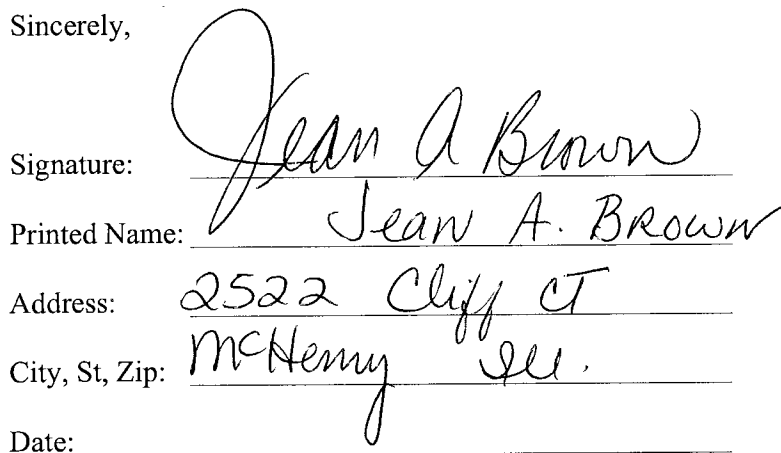 Sincerely,
Signature: Jean A Brown
Printed Name: Jean A. Brown
Address: 2522 Cliff CT
City, St, Zip: McHenry Ill.
Date: